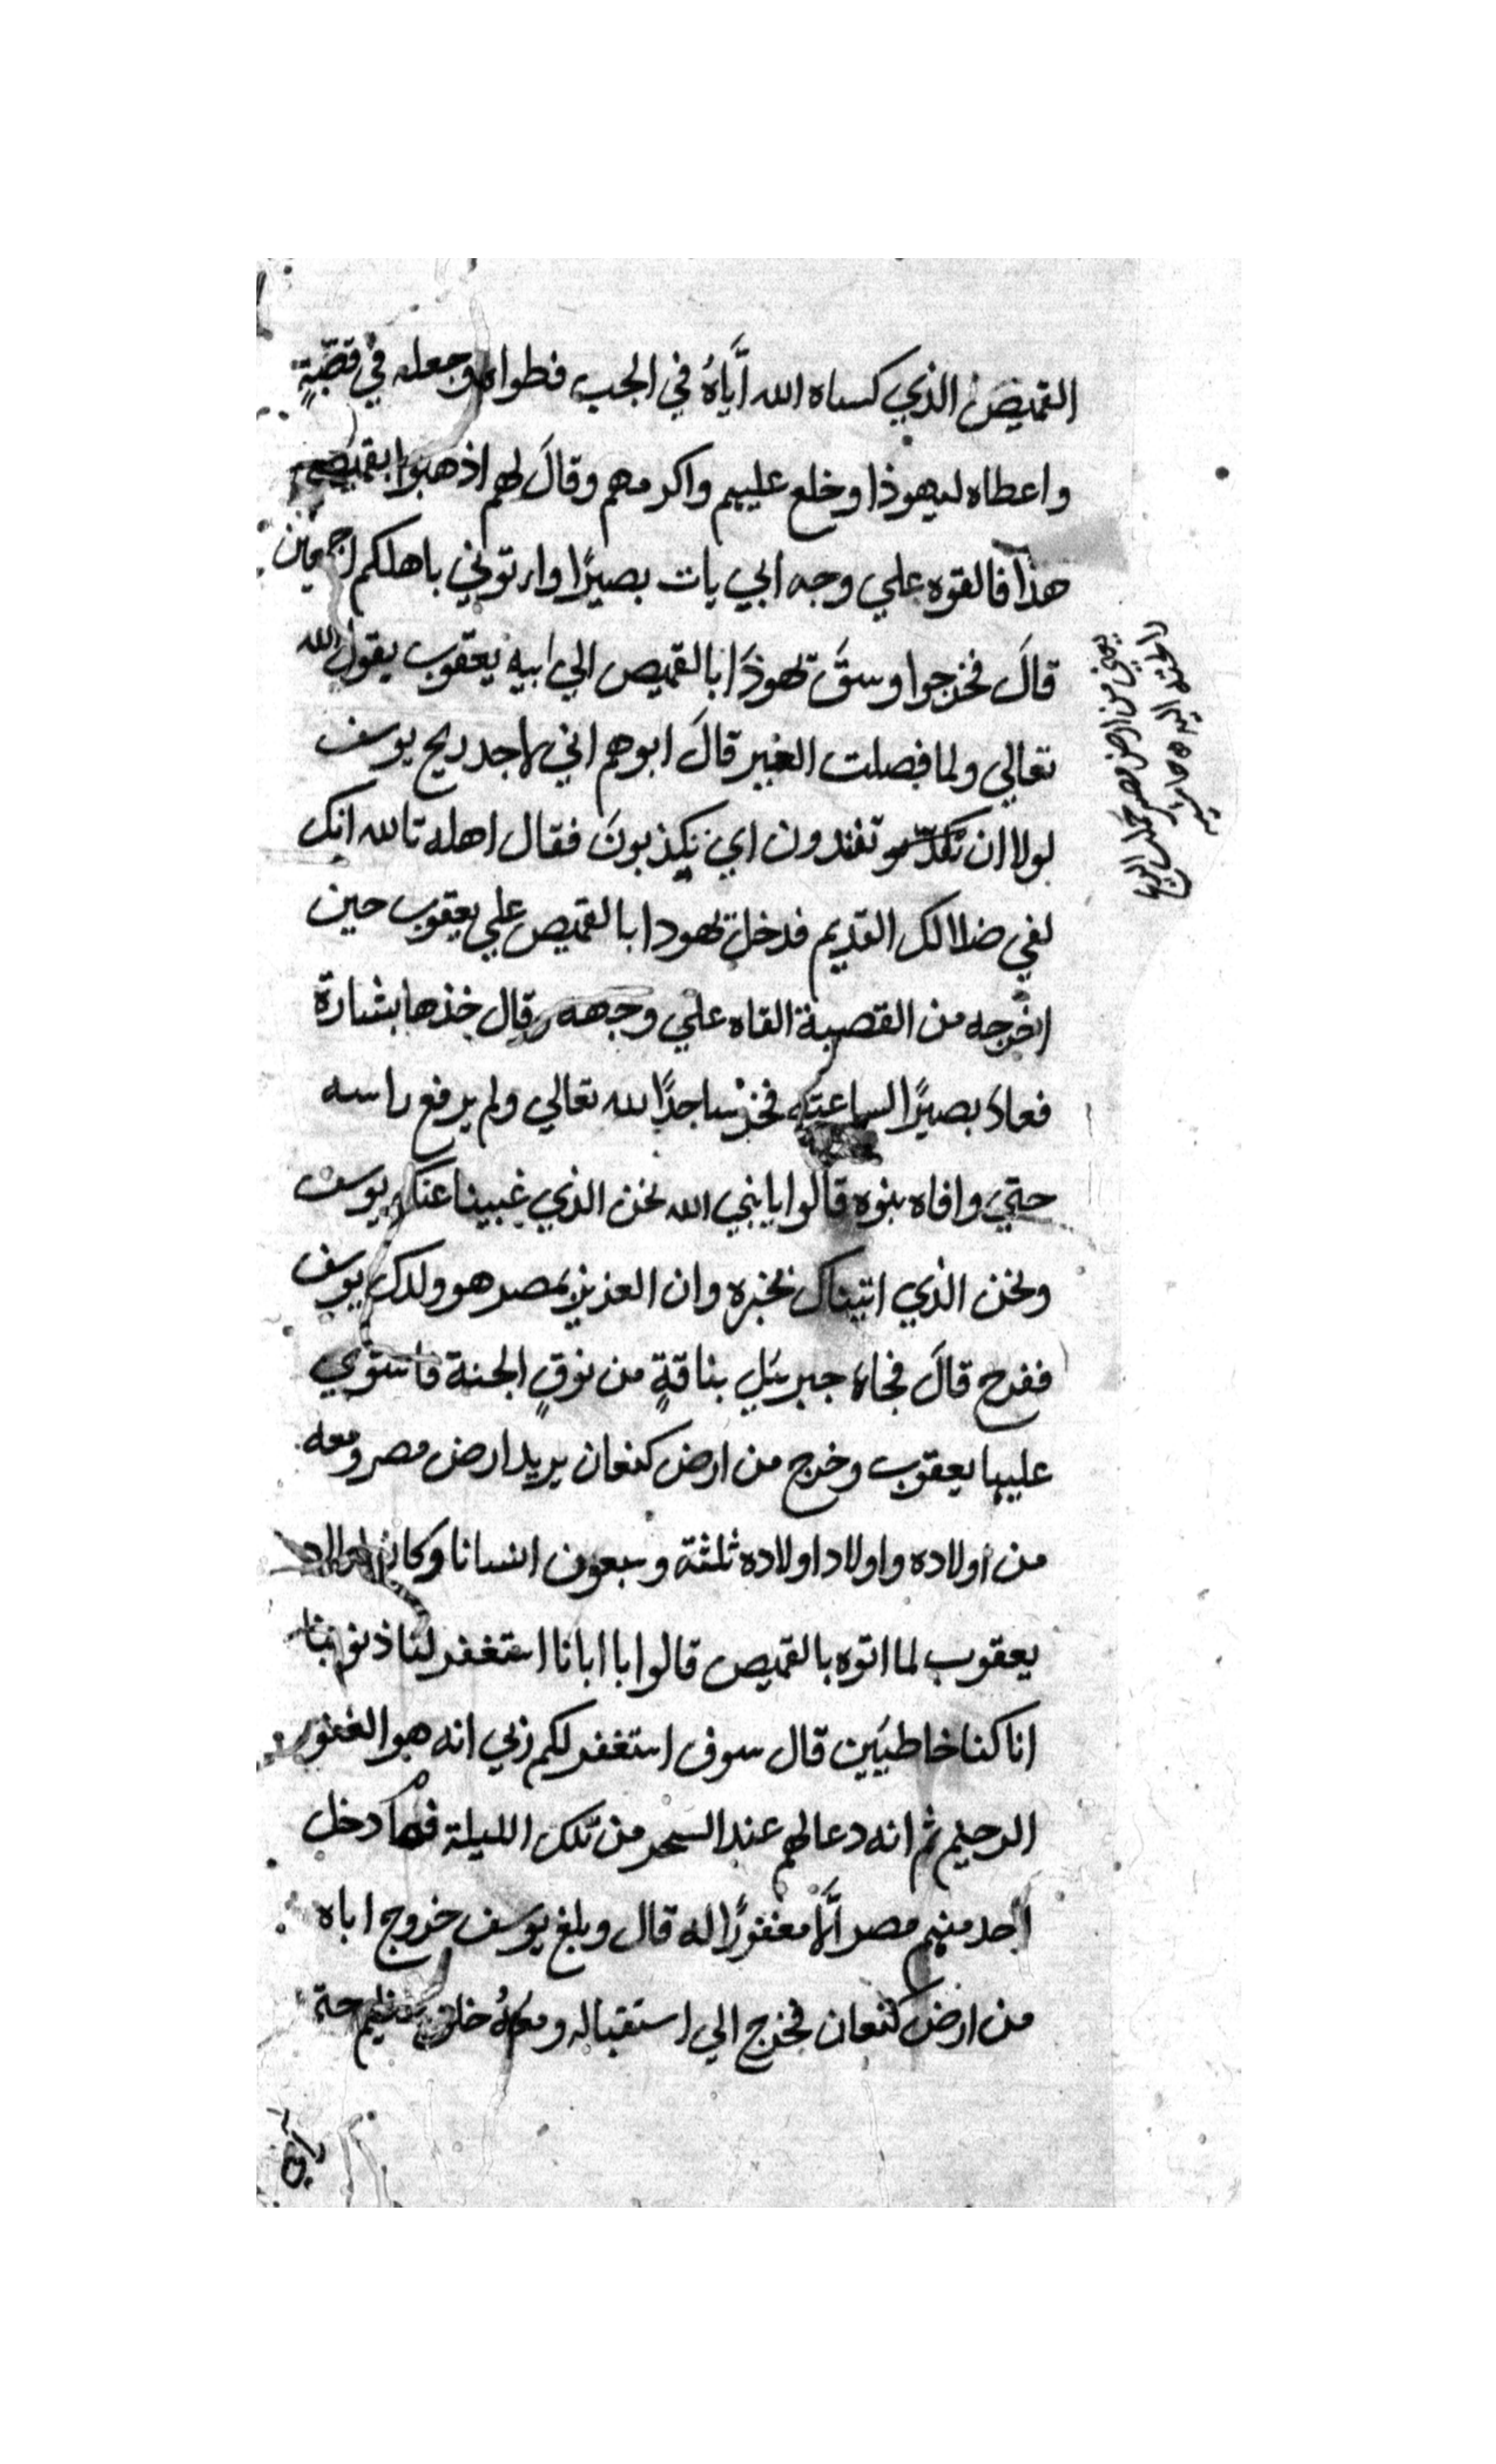 القميص الذي كساه الله اَيَّاهُ في الجب فطواه وجعله في قصَبَةٍ
واعطاه ليهوذا وخلع عليهم واكرمهم وقالَ لهم اذهبوا بقميصي
هذا فالقوه علي وجه ابي يات بصيرًا واتوني باهلكم اجمعين
قالَ فخرجوا وسبَقَ يهوذَا بالقميص الي ابيه يعقوب يقول الله
تعالي ولما فصلت العير قالَ ابوهم اني لاجد ريح يوسف
لولا ان تفندون اي تكذبونَ فقال اهله تالله انك
لفي ضلالك القديم فدخل يهودا بالقميص علي يعقوب حين
اخرجه من القصبة القاه علي وجهه وقال خذها بشارة
فعادَ بصيرًا لساعته فخرَّ ساجدًا لله تعالي ولم يرفع راسه
حتي وافاه بنوه قالوا يا نبي الله نحن الذي غيبنا عنك يوسف
ونحن الذي اتيناك بخبره وان العزيز بمصر هو ولدك يوسف
ففرح قالَ فجاءَ جبرئيل بناقةٍ من نوقِ الجنة فاستوي
عليها يعقوب وخرج من ارض كنعان يريد ارض مصر ومعه
من اولاده واولاد اولاده ثلثة وسبعون انسانا وكان اولاد
يعقوب لما اتوه بالقميص قالوا يا ابانا استغفر لنا ذنوبنا
انا كنا خاطيين قال سوف استغفر لكم ربي انه هو الغفور
الرحيم ثم انه دعا لهم عند السحر من تلك الليلة فما دخل
احد منهم مصر اَلَّا مغفورًا له قال وبلغ يوسف خروج اباه
من ارض كنعان فخرج الي استقباله ومعهُ خلق عظيم حتي
يعني من ارض مصر حمل الريح
رائحة اليه